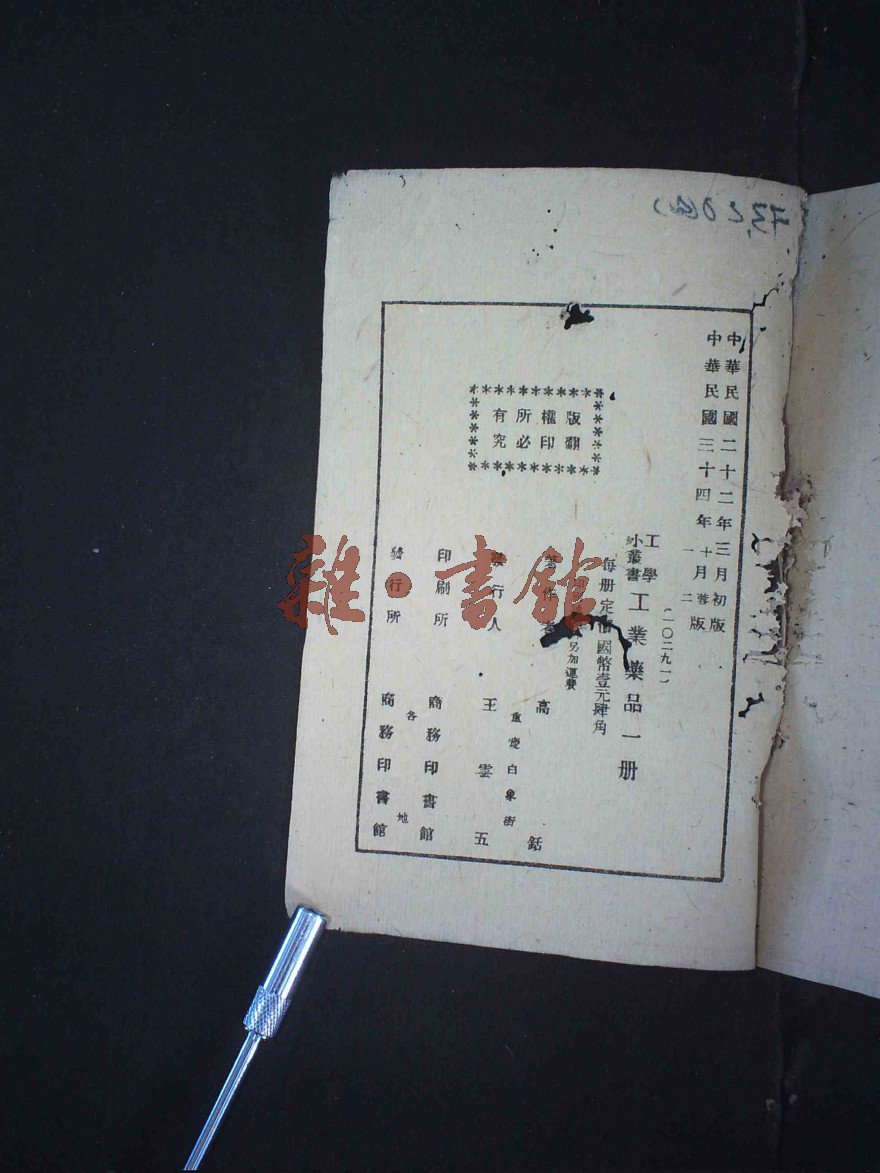 中華民國二十二年三月初版
中華民國三十四年十一月蓉二版
(一〇二九一)
工學小叢書 工業藥品一册
每册定價國幣壹元肆角
另加運費
版權所有
翻印必究
著作者 高銛
重慶白象街
發行人 王雲五
印刷所 商務印書館
各地
發行所 商務印書館
雜·書館